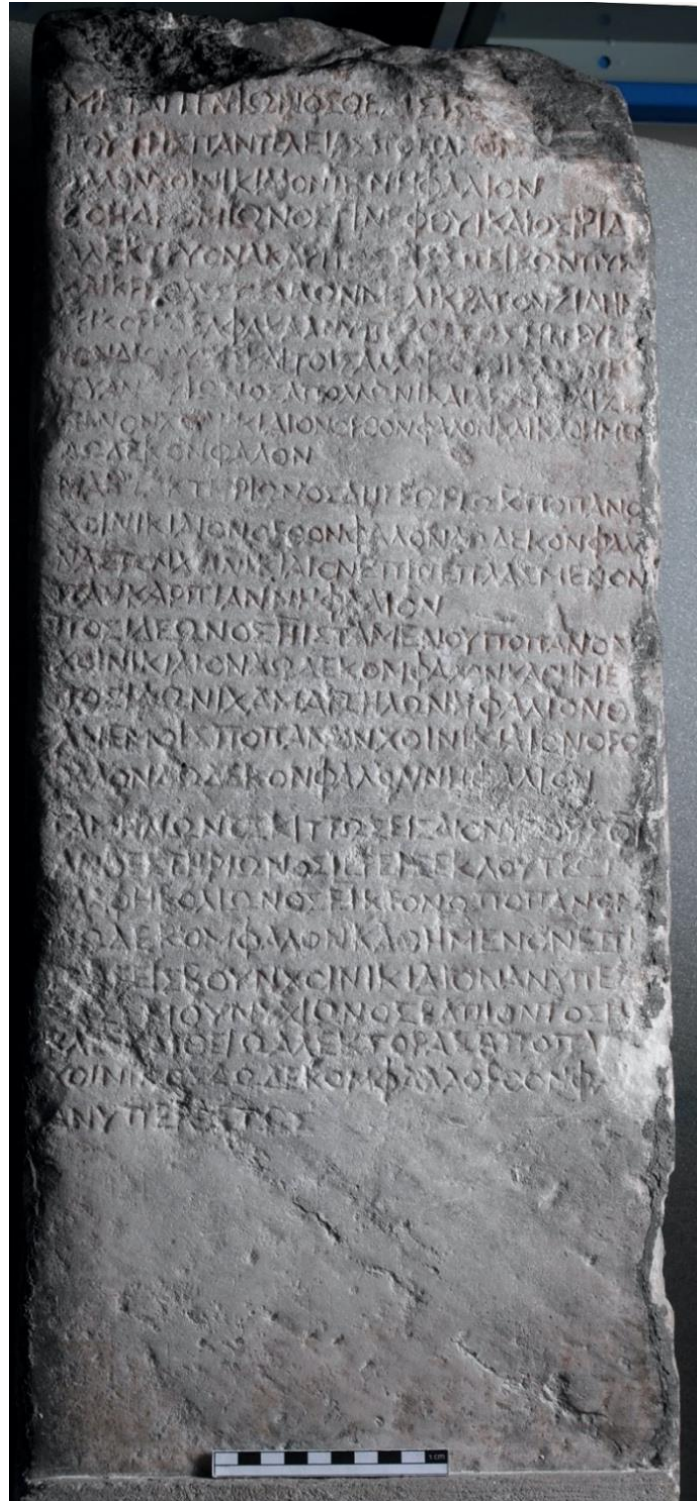 ΜΕΤΑΓΙΤΝΙΩΝΟΣΘΕΑΙΣΙ
ΤΗΣΠΑΝΤΕΛΕΙΑΣΠΟΠΑΝΟΝ
ΦΑΛΟΝΧΟΙΝΙΚΙΑΙΟΝΝΗΦΑΛΙΟΝ
ΒΟΗΔΡΟΜΙΩΝΟΣΓΙΝΕΦΘΥΙΚΑΙΟΣΙΡΙΔ
ΑΛΕΚΤΡΥΟΝΑΚΑΡΠΩΣΕΙΣΣΠΕΙΡΩΝΠΥΡ
ΚΑΙΚΡΕΙΘΑΣΣΠΕΝΔΩΝΜΕΛΙΚΡΑΤΟΝΖΙΔΗΜ
ΔΕΛΦΑΚΑΑΝΥΠΕΡΘΕΤΩΣΗΙΤΡΥΓΗ
ΤΟΝΔΙΟΝΥΣΩΚΑΙΤΟΙΣΑΛΛΟΙΣ
ΠΥΑΝΟΨΙΩΝΟΣΑΠΟΛΛΩΝΙΚΑΙΑΡΤΕΜΙΔΙΖ
ΠΑΝΟΝΧΟΙΝΙΚΙΑΙΟΝΟΡΘΟΝΦΑΛΟΝΚΑΙΚΑΘΗΜΕΝ
ΔΩΔΕΚΟΝΦΑΛΟΝ
ΜΑΙΜΑΚΤΗΡΙΩΝΟΣΔΙΙΓΕΩΡΓΩΚΠΟΠΑΝΟ
ΧΟΙΝΙΚΙΑΙΟΝΟΡΘΟΝΦΑΛΟΝΔΩΔΕΚΟΝΦΑΛ
ΝΑΣΤΟΝΧΟΙΝΙΚΙΑΙΟΝΕΠΙΠΕΠΛΑΣΜΕΝΟΝ
ΠΑΝΚΑΡΠΙΑΝΝΗΦΑΛΙΟΝ
ΠΟΣΙΔΕΩΝΟΣΗΙΣΤΑΜΕΝΟΥΠΟΠΑΝΟΝ
ΧΟΙΝΙΚΙΑΙΟΝΔΩΔΕΚΟΜΦΑΛΟΝΚΑΘΗΜΕ
ΠΟΣΙΔΩΝΙΧΑΜΑΙΖΗΛΩΝΗΦΑΛΙΟΝΘ
ΑΝΕΜΟΙΣΠΟΠΑΝΟΝΧΟΙΝΙΚΙΑΙΟΝΟΡΘ
ΦΑΛΟΝΔΩΔΕΚΟΝΦΑΛΟΝΝΗΦΑΛΙΟΝ
ΓΑΜΗΛΙΩΝΟΣΚΙΤΤΩΣΕΙΣΔΙΟΝΥΣΟΥΣΘΙ
ΑΝΘΕΣΤΗΡΙΩΝΟΣΙΕΡΕΙΣΕΚΛΟΥΤΡ
ΕΛΑΦΗΒΟΛΙΩΝΟΣΕΙΚΡΟΝΩΠΟΠΑΝΟΝ
ΔΩΔΕΚΟΜΦΑΛΟΝΚΑΘΗΜΕΝΟΝΕΠΙ
ΠΛΑΣΕΙΣΒΟΥΝΧΟΙΝΙΚΙΑΙΟΝΑΝΥΠΕΡ
ΜΟΥΝΥΧΙΩΝΟΣ
ΘΕΙΩΑΛΕΚΤΟΡΑΣΒΠΟΠΑ
ΧΟΙΝΙΚΙΔΩΔΕΚΟΜΦΑΛΟΡΘΟΝΦΑ
ΑΝΥΠΕΡΘΕΤΩΣ